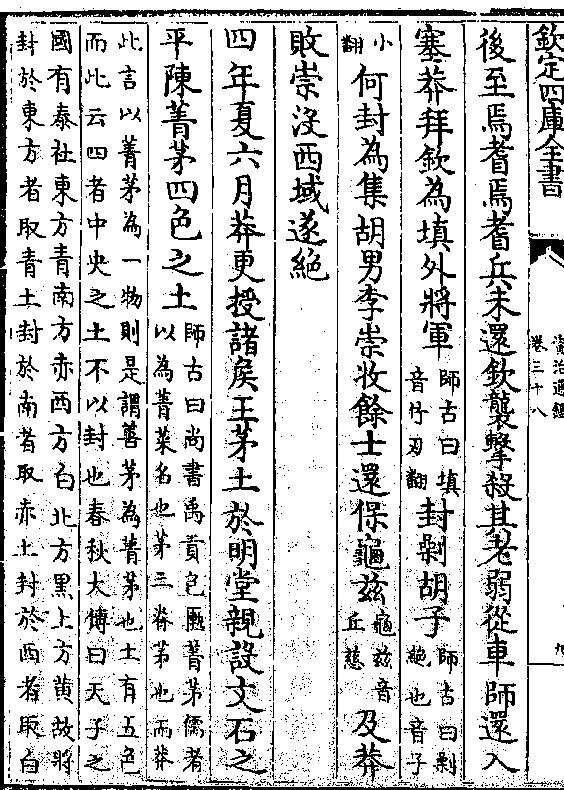 欽定四庫全書
資治通鑑
卷三十八
後至焉耆焉耆兵未還欽襲擊殺其老弱從車師還入
塞莽拜欽為填外將軍師古曰填音竹刃翻封剿胡子師古曰剿絶也音子
小翻何封為集胡男李崇收餘士還保龜兹龜兹音丘慈及莽
敗崇没西域遂絶
四年夏六月莽更授諸侯王茅土於明堂親設文石之
平陳菁茅四色之土師古曰尚書禹貢包匭菁茅儒者以為菁菜名也茅三脊茅也而莽
此言以菁茅為一物則是謂善茅為菁茅也土有五色而此云四者中央之土不以封也春秋大傳曰天子之
國有泰社東方青南方赤西方白北方黒上方黄故將封於東方者取青土封於南者取赤土封於西者取白